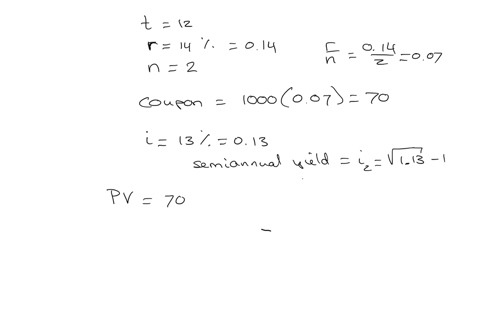 t = 12
r = 14 % = 0.14
r/n = 0.14/2 = 0.07
n = 2
coupon = 1000(0.07) = 70
i = 13 % = 0.13
semiannual yield = i₂ = √1.13 - 1
PV = 70
-